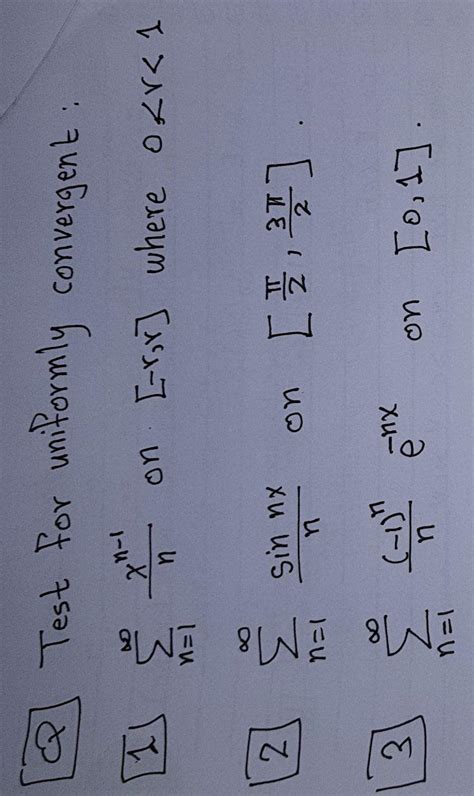 Q Test for uniformly convergent:
1 \sum_{n=1}^{∞} \frac{x^{n-1}}{n} on [-r,r] where 0<r<1
2 \sum_{n=1}^{∞} \frac{sin nx}{n} on [\frac{π}{2}, \frac{3π}{2}].
3 \sum_{n=1}^{∞} \frac{(-1)^n}{n} e^{-nx} on [0,1].